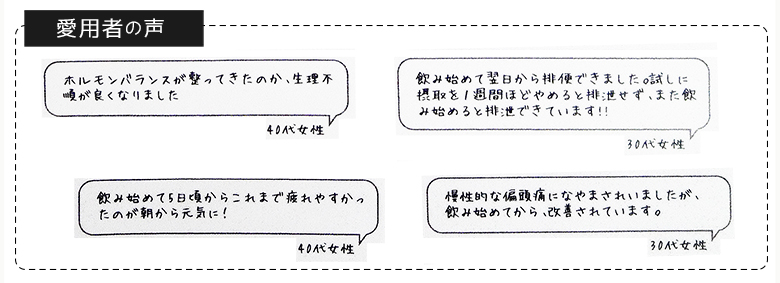 愛用者の声
ホルモンバランスが整ってきたのか、生理不
順が良くなりました
40代女性
飲み始めて翌日から排便できました。試しに
摂取を1週間ほどやめると排泄せず、また飲
み始めると排泄できています!!
30代女性
飲み始めて5日頃からこれまで疲れやすかっ
たのが朝から元気に!
40代女性
慢性的な偏頭痛になやまされいましたが、
飲み始めてから、改善されています。
30代女性